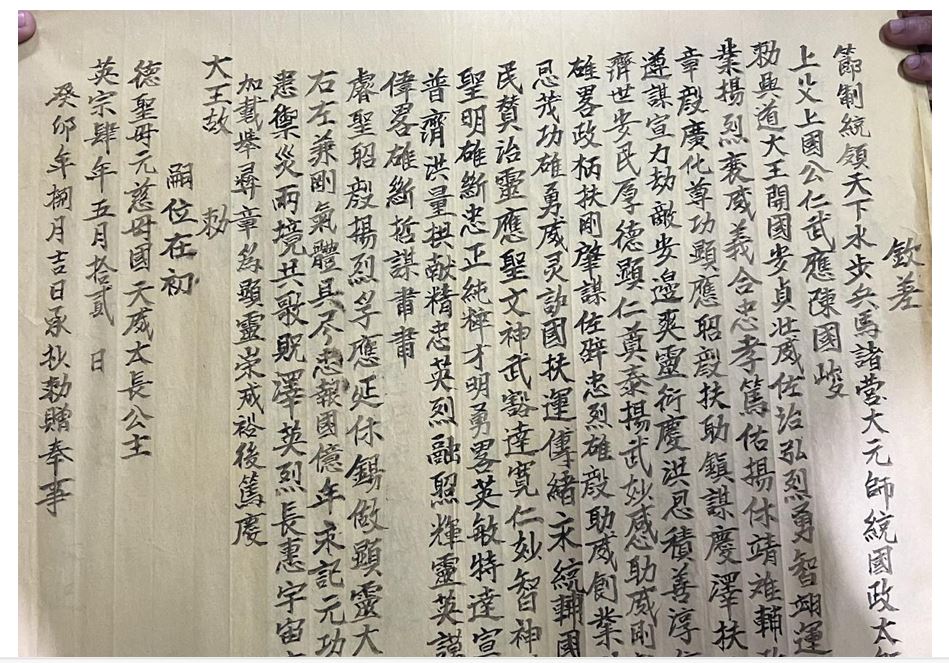 欽差
節制統領天下水步兵馬諸營大元帥統國政太
上父上國公仁武應陳國峻
勑興道大王開國安貞壯威佐治弘烈勇智翊運
業揚烈衷威義合忠孝篤佑揚休靖难輔
章嘏廣化尊功顯應昭嘏扶助鎮謀慶澤扶
遵謀宣力劫敵安邉爽靈衍慶洪恩積善淳
齊世安民厚德顯仁奠泰揚武妙感助威剛
雄畧政柄扶剛肇謀佐辟忠烈雄嘏助威創業
忌茂功雄勇威灵訪國扶運傳緒永統輔國
民賛治靈應聖文神武豁達寬仁妙智神
聖明雄斷忠正純粹才明勇畧英敏特達宣
普濟洪量拱献精忠英烈融照輝靈英謨
偉畧雄斷哲謀書肅
睿聖昭嘏揚烈孚應延休錫做顯靈大
右左兼剛氣體具尽忠報國億年永記元功
患禦災兩境共歌貺澤英烈長惠宇宙
加載舉尋章為顯靈崇戒裕後篤慶
大王故 勑
嗣位在初
德聖母元慈母國天威太長公主
英宗肆年五月拾貳 日
癸卯年捌月吉日承抄勑贈奉事